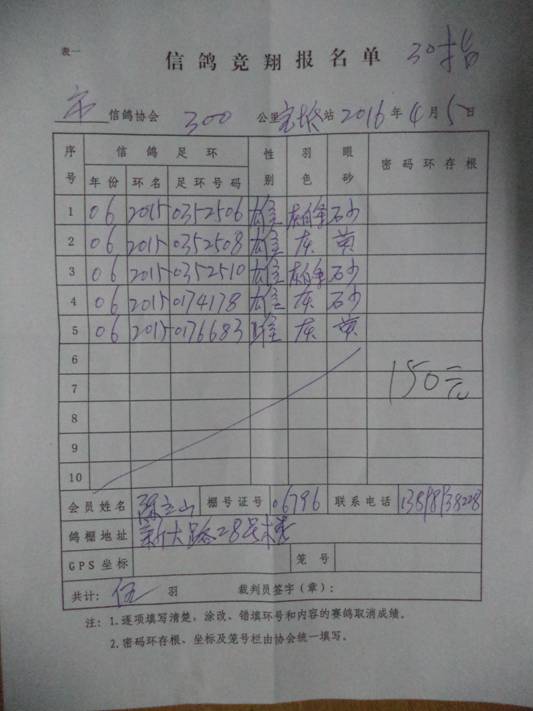 表一
信鸽竞翔报名单 30指
市 信鸽协会 300 公里 站 2016年4月5日
序号 信鸽足环 性别 羽色 眼砂 密码环存根
年份 环名 足环号码
1 06 2015 0352506 雄 砂
2 06 2015 0352508 雄 灰 黄
3 06 2015 0352510 雄 砂
4 06 2015 0174178 雄 灰 砂
5 06 2015 0176683 雌 灰 黄
6
7 150元
8
9
10
会员姓名 陈立山 棚号证号 06796 联系电话
鸽棚地址 新大路28号楼
GPS坐标 笼号
共计: 伍 羽 裁判员签字(章):
注: 1.逐项填写清楚,涂改、错填环号和内容的赛鸽取消成绩。
2.密码环存根、坐标及笼号栏由协会统一填写。